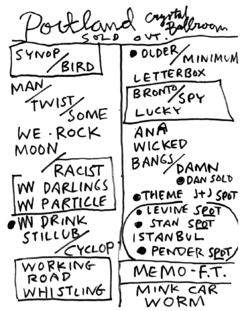 Portland Crystal Ballroom
SOLD OUT.
SYNOP/
BIRD
MAN/
TWIST/
SOME
WE-ROCK
MOON/
RACIST
W DARLINGS
W PARTICLE
• W DRINK
STILLUB/
CYCLOP
WORKING
ROAD
WHISTLING
• OLDER/
MINIMUM
LETTERBOX
BRONTO/SPY
LUCKY
ANA
WICKED
BANGS/
DAMN
• DAN SOLO
• THEME J+J SPOT
• LEVINE SPOT
• STAN SPOT
ISTANBUL
• PENDER SPOT
MEMO-F.T.
MINK CAR
WORM